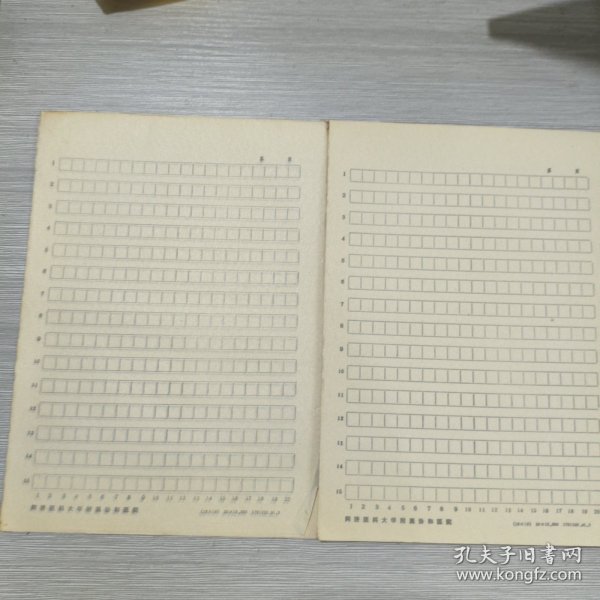 第 页
1
2
3
4
5
6
7
8
9
10
11
12
13
14
15
1 2 3 4 5 6 7 8 9 10 11 12 13 14 15 16 17 18 19 20
同济医科大学附属协和医院
第 页
1
2
3
4
5
6
7
8
9
10
11
12
13
14
15
1 2 3 4 5 6 7 8 9 10 11 12 13 14 15 16 17 18 19 20
同济医科大学附属协和医院
孔夫子旧书网
www.kongfz.com